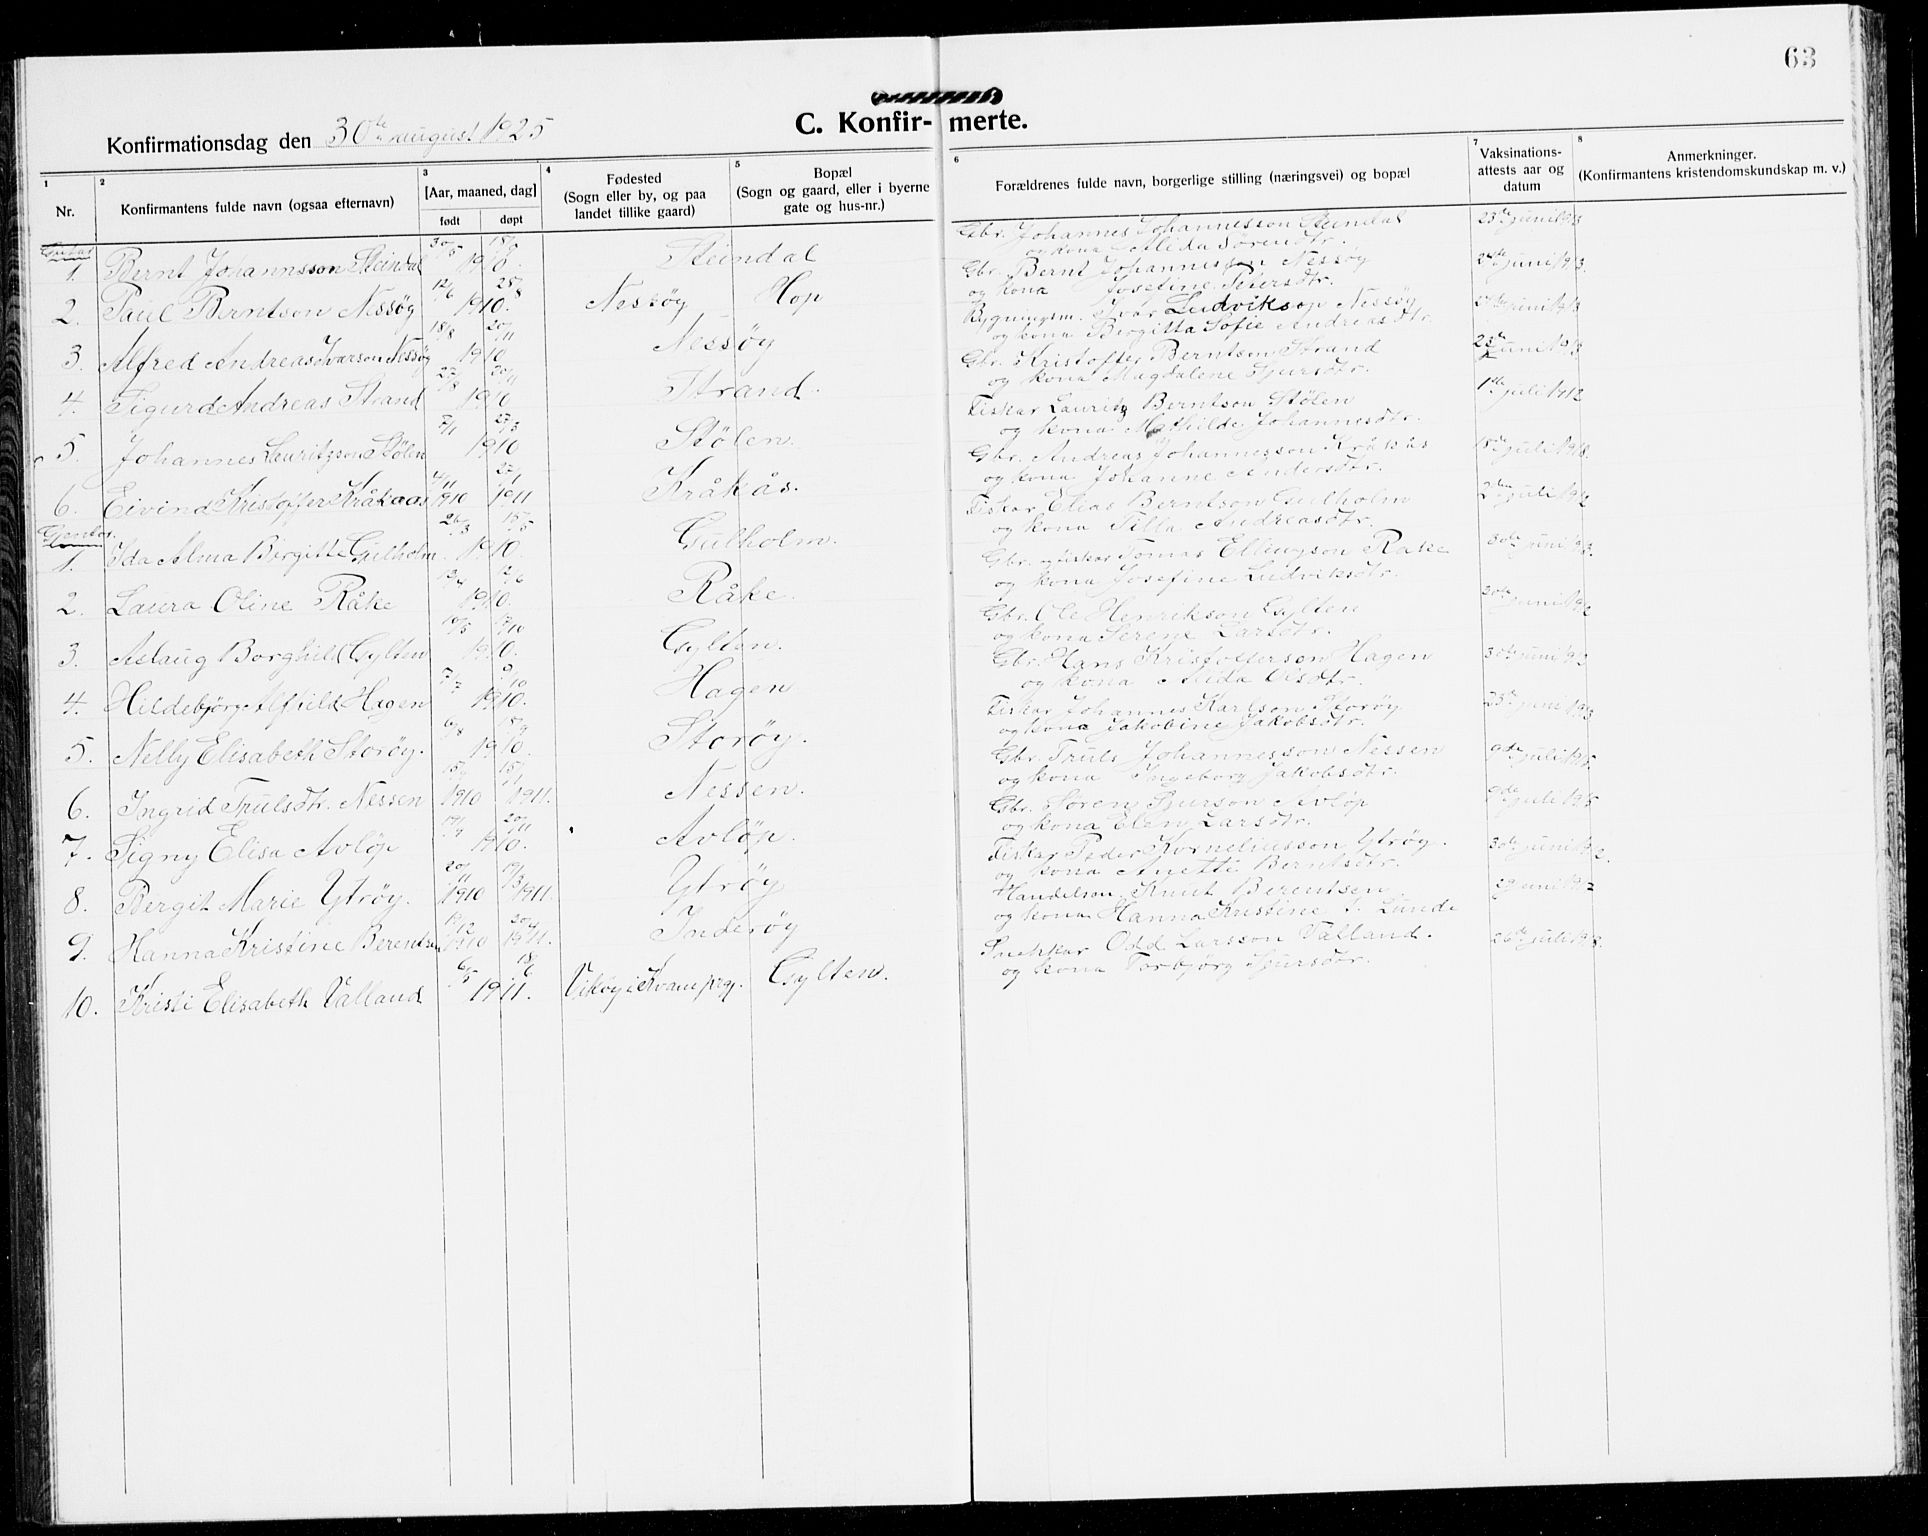 63
C. Konfir- merte.
Konfirmationsdag den 30te august 1925
1 2 3 4 5 6 7 8
Nr.
Konfirmantens fulde navn (ogsaa efternavn)
[Aar, maaned, dag]
født døpt
Fødested
(Sogn eller by, og paa
landet tillike gaard)
Bopæl
(Sogn og gaard, eller i byerne
gate og hus-nr.)
Forældrenes fulde navn, borgerlige stilling (næringsvei) og bopæl
Vaksinations-
attests aar og
datum
Anmerkninger.
(Konfirmantens kristendomskundskap m. v.)
1. Bernt Johannsson Steindal 30/5 15/6 1910. Steindal
Gbr. Johannes Johannesson Steindal 23de juni 1913
og kona Alida Sørensdtr.
2. Paul Berntson Nessøy 12/6 25/8 1910. Nessøy Hop
Gbr. Bernt Johannesson Nessøy 24de juni 1913.
og kona Josefine Peiersdtr.
3. Alfred Andreas Ivarson Nessøy 18/8 20/11 1910 Nessøy
Bygningsm. Ivar Ludvikson Nessøy juni 1913
og kona Birgitta Sofie Andreasdtr.
4. Sigurd Andreas Strand 27/8 20/11 1910 Strand.
Gbr. Kristoffer Berntson Strand juni 1913
og kona Magdalene Sjursdtr.
5. Johannes Lauritzson Stölen 27/3 1910 Stölen.
Fiskar Lauritz Berntson Stölen 1ste juli 1912
og kona Mathilde Johannesdtr.
6. Eivind Kristoffer Kråkaas 1910 27/1 1911 Kråkås.
Gbr. Andreas Johannesson Kråkås 18de juli 1918.
og kona Johanne Andersdtr.
Gjentor.
1. Ida Alma Birgitte Gulholm. 26/3 15/5 1910. Gulholm.
Fiskar Elias Berntson Gulholm juli 1912
og kona Tilla Andreasdtr.
2. Laura Oline Råke 13/4 12/6 1910. Råke.
Gbr. og fiskar Tomas Ellingson Råke 30te juni 1913.
og kona Josefine Ludviksdtr.
3. Aslaug Borghild Gylten 10/5 1910. Gylten.
Gbr. Ole Henrikson Gylten juni 1912
og kona Serene Larsdtr.
4. Hildebjørg Alfhild Hagen 7/7 9/10 1910. Hagen
Gbr. Hans Kristofferson Hagen 30te juni 1913
og kona Alida Olsdtr.
5. Nelly Elisabeth Storøy. 6/8 1910. Storøy.
Fiskar Johannes Karlson Storøy 25de juni 1913
og kona Jakobine Jakobsdtr.
6. Ingrid Trulsdtr. Nessen 1910 15/1 1911. Nessen.
Gbr. Truls Johannesson Nessen 9de juli 1915.
og kona Ingeborg Jakobsdtr.
7. Signy Elisa Avlöp 20/11 1910. Avlöp.
Gbr. Sören Sjurson Avlöp 9de juli 1915
og kona Elen Larsdtr.
8. Bergit Marie Ytröy. 20/11 1910 19/3 1911. Ytröy
Fiskar Peder Korneliusson Ytröy. 30te juni 1912.
og kona Anette Berntsdtr.
9. Hanna Kristine Berentsen 19/12 1910 20/4 1911. Inderöy
Handelsm. Knut Berentsen juni 1912
og kona Hanna Kristine f. Lunde
10. Kristi Elisabeth Valland 6/5 18/6 1911. Vikøy i Kvam prgj. Gylten.
Snekkar Odd Larsson Valland. 26de juli 1918.
og kona Torbjörg Sjursdtr.